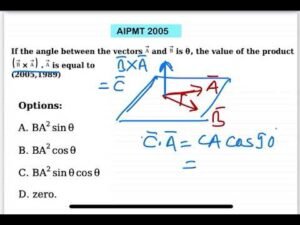 AIPMT 2005
If the angle between the vectors A⃗ and B⃗ is θ, the value of the product
(B⃗ × A⃗) . A⃗ is equal to
(2005,1989)
B̅×A̅
= C̅
A̅
B̅
Options:
A. BA² sin θ
B. BA² cos θ
C. BA² sin θ cos θ
D. zero.
C̅.A̅ = CA cos90
=